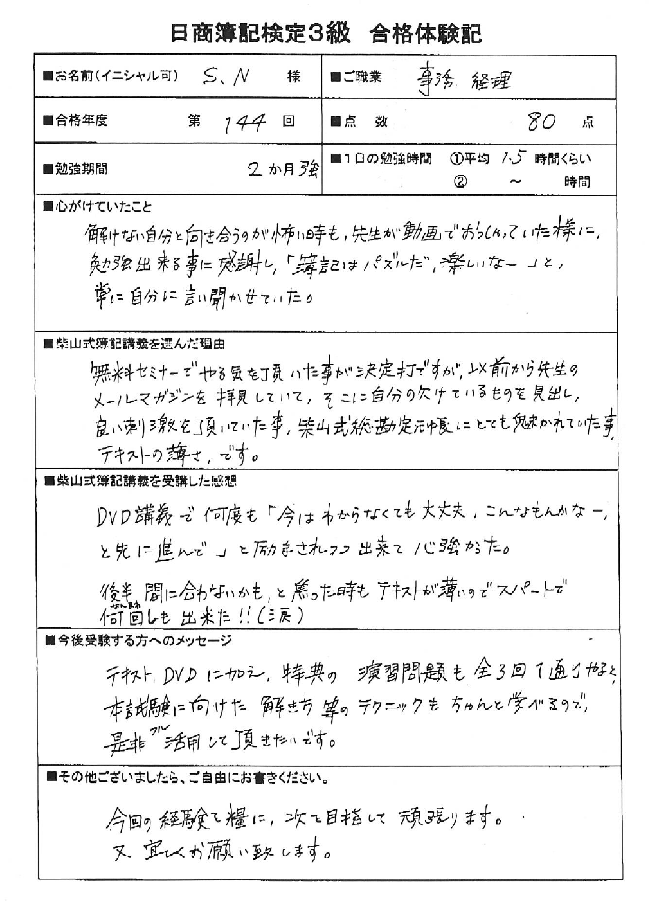 日商簿記検定3級 合格体験記
■お名前(イニシャル可) S.N 様 ■ご職業 事務 経理
■合格年度 第 144 回 ■点数 80 点
■勉強期間 2か月強 ■1日の勉強時間 ①平均 1.5 時間くらい
② ～ 時間
■心がけていたこと
解けない自分と向き合うのが怖い時も、先生が動画でおっしゃっていた様に、
勉強出来る事に感謝し、「簿記はパズルだ、楽しいなー」と、
常に自分に言い聞かせていた。
■柴山式簿記講義を選んだ理由
無料セミナーでやる気を頂いた事が決定打ですが、以前から先生の
メールマガジンを拝見していて、そこに自分の欠けているものを見出し、
良い刺激を頂いていた事、柴山式総勘定元帳にとても魅かれていた事、
テキストの薄さ、です。
■柴山式簿記講義を受講した感想
DVD講義で何度も「今はわからなくても大丈夫、こんなもんかなー、
と先に進んで」と励まされつつ出来て心強かった。
後半 間に合わないかも、と焦った時もテキストが薄いのでスパートで
何回しも出来た!!(涙)
■今後受験する方へのメッセージ
テキスト、DVDに加え、特典の演習問題も全3回1通りやると、
本試験に向けた解き方等のテクニックもちゃんと学べるので、
是非フル活用して頂きたいです。
■その他ございましたら、ご自由にお書きください。
今回の経験を糧に、次を目指して頑張ります。
又宜しくお願い致します。